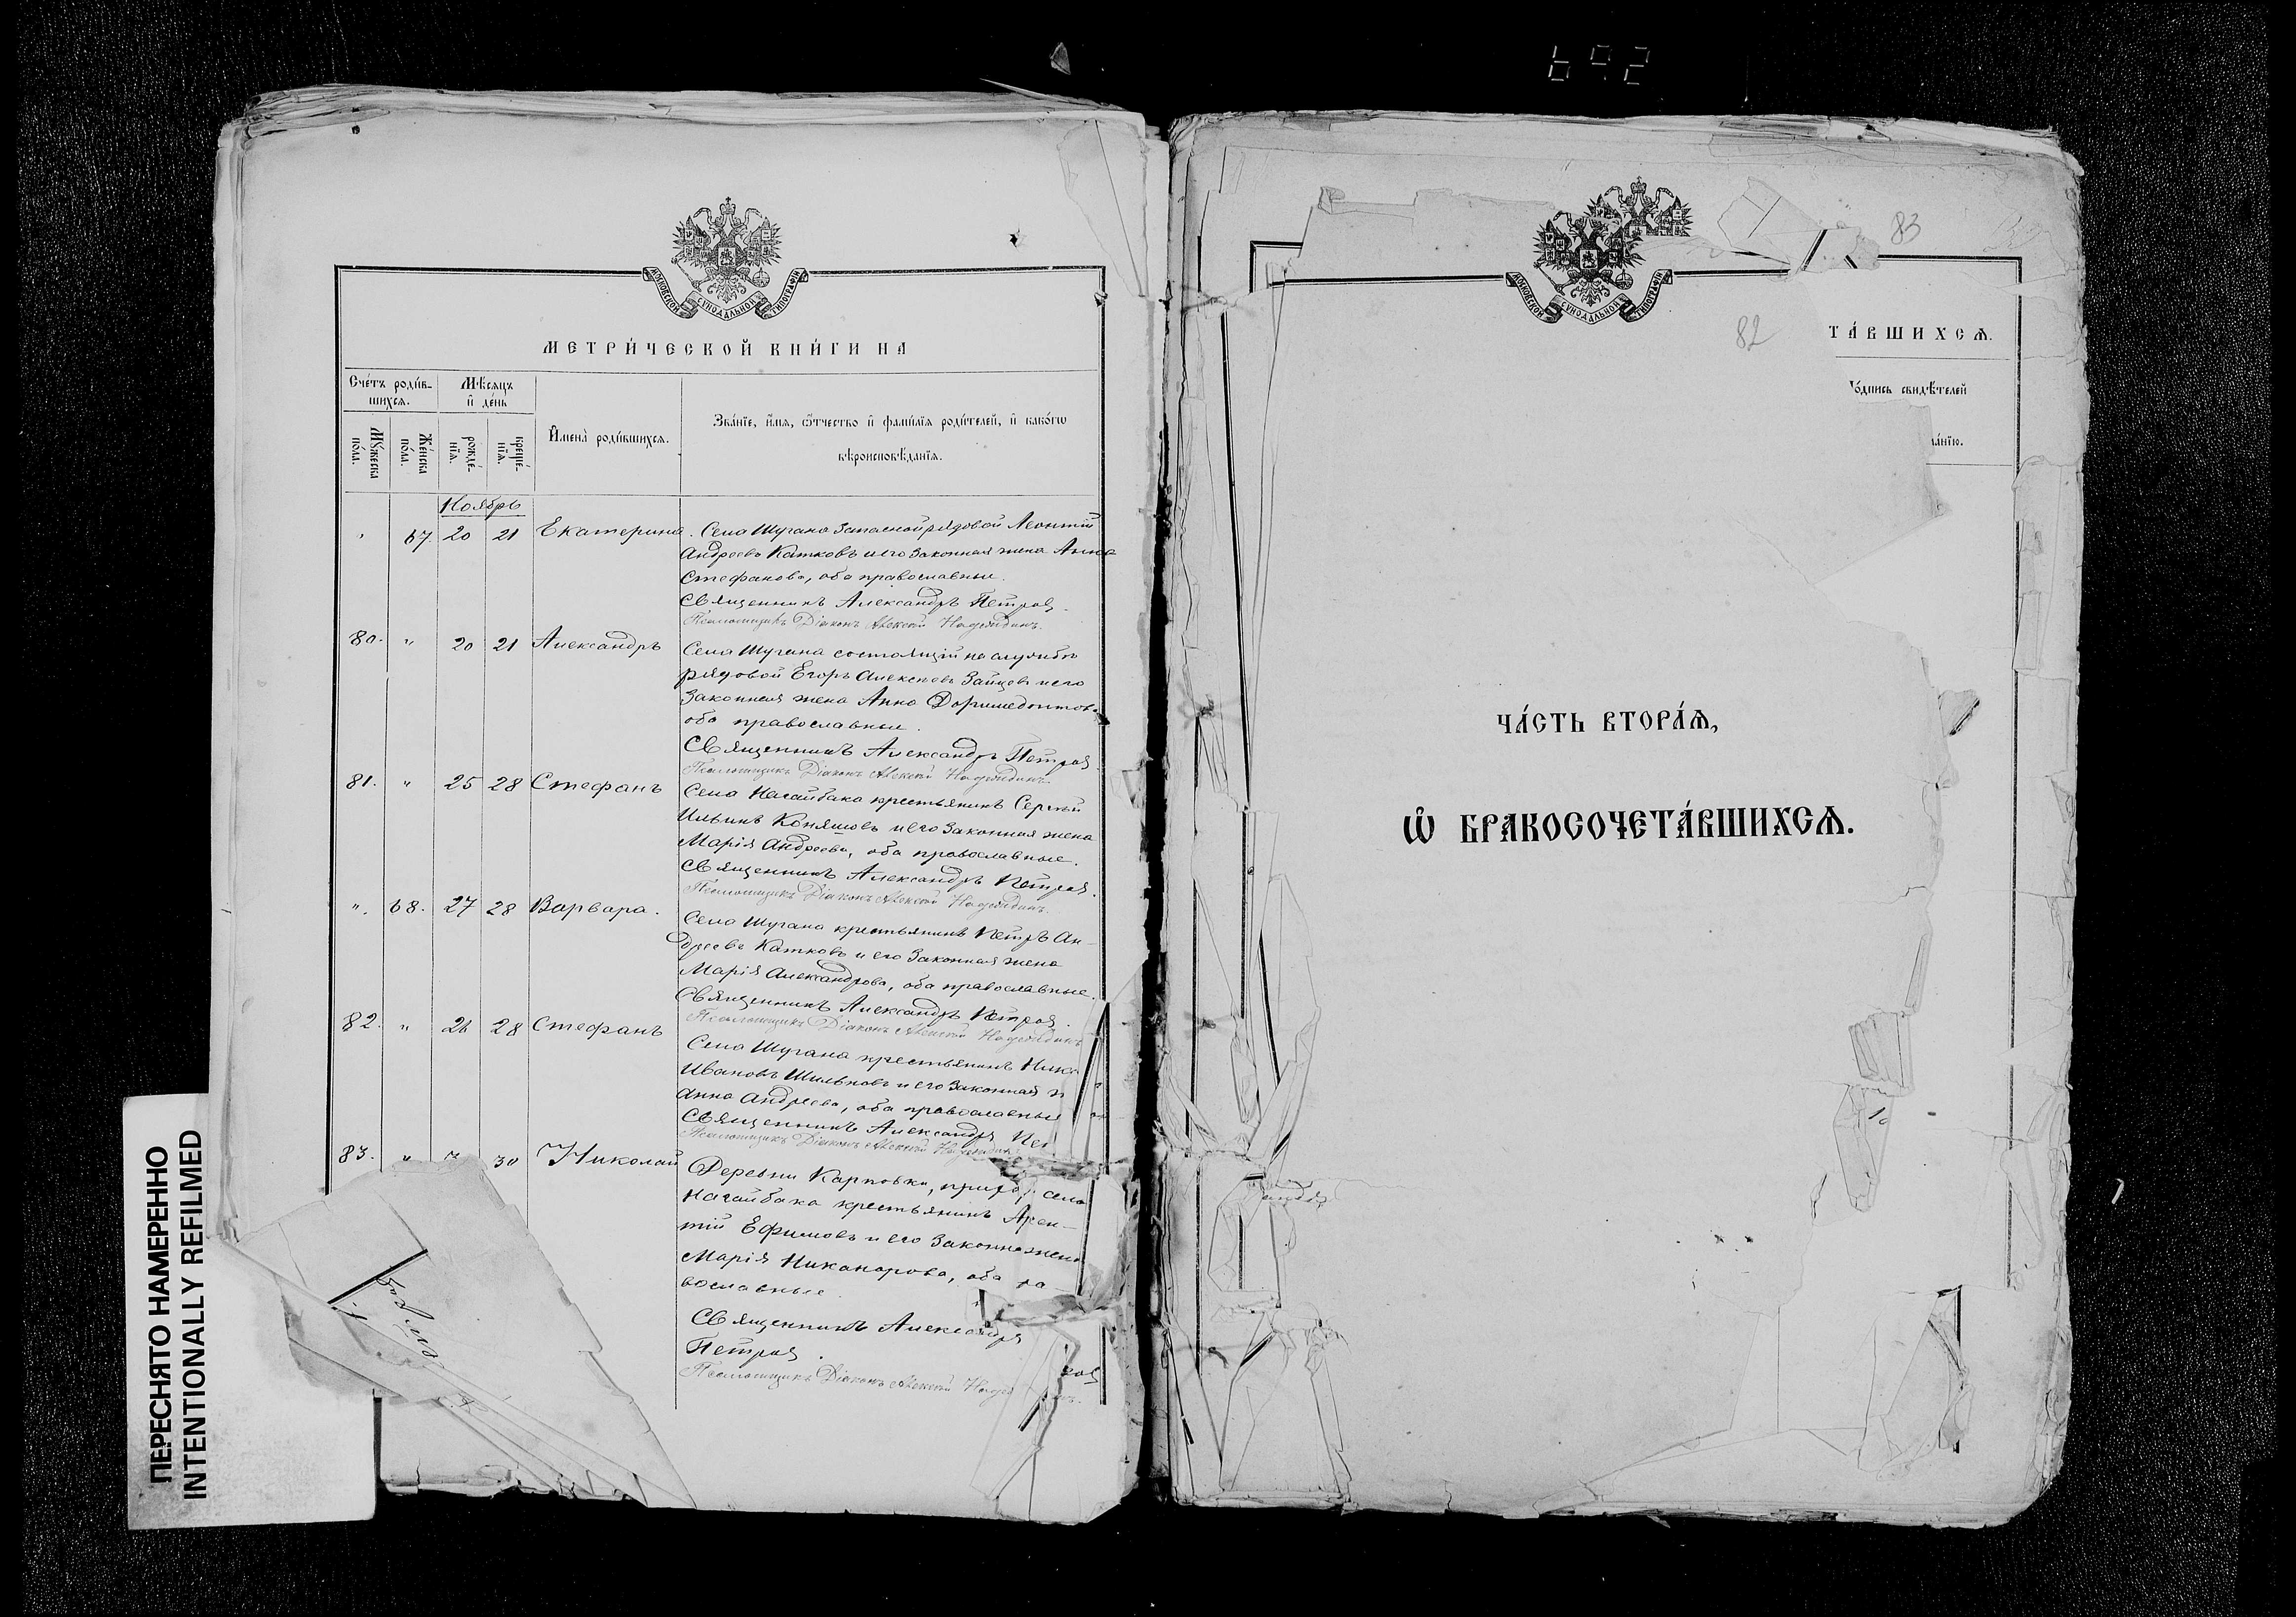 692
МОСКОВСКОЙ СѴНОДАЛЬНОЙ ТИПОГРАФІИ
МЕТРИ́ЧЕСКОЙ КНИ́ГИ НА
Сче́тъ роди́в-
шихсѧ.
Мѣсѧцъ
и҆ де́нь
И҆мена̀ роди́вшихсѧ.
Зва́нїе, и҆́мѧ, ѻ҆́тчество и҆ фами́лїѧ роди́телей, и҆ како́гѡ
вѣроисповѣ́данїѧ.
Мꙋ́жеска
по́ла.
Же́нска
по́ла.
рожде́-
нїѧ.
креще́-
нїѧ.
Ноябрь
67. 20 21 Екатерина. Села Шугана запасной рядовой Леонтій
Андреевъ Катковъ и его законная жена Анна
Стефанова, оба православные.
Священникъ Александръ Петровъ.
Псаломщикъ Діаконъ Алексѣй
80. " 20 21 Александръ Села Шугана состоящій на службѣ
рядовой Егоръ Алексѣевъ Зайцевъ и его
законная жена Анна Доримедонтова
оба православные.
Священникъ Александръ Петровъ
Псаломщикъ Діаконъ Алексѣй
81. " 25 28 Стефанъ Села Нагайбака крестьянинъ Сергѣй
Ильинъ Коняшовъ и его законная жена
Марія Андреева, оба православные.
Священникъ Александръ Петровъ.
Псаломщикъ Діаконъ Алексѣй
". 68. 27 28 Варвара. Села Шугана крестьянинъ Петръ Ан-
дреевъ Катковъ и его законная жена
Марія Александрова, оба православные.
Священникъ Александръ Петровъ.
Псаломщикъ Діаконъ Алексѣй
82. " 26 28 Стефанъ Села Шугана крестьянинъ
Ивановъ Шильновъ и его законная
Анна Андреева, оба православные
Священникъ Александръ
Псаломщикъ Діаконъ Алексѣй
83. " 30 Николай Деревни Карповки, села
Нагайбака крестьянинъ
тій Ефимовъ и его законна жена
Марія Никанорова, оба
вославные.
Священникъ Александръ
Петровъ.
Псаломщикъ Діаконъ Алексѣй
83
МОСКОВСКОЙ СѴНОДАЛЬНОЙ ТИПОГРАФІИ
82
ТА́ВШИХСѦ.
о́дпись свидѣ́телей
ла́нїю.
ЧА́СТЬ ВТОРА́Ѧ,
Ѡ҆ БРАКОСОЧЕТА́ВШИХСѦ.
ПЕРЕСНЯТО НАМЕРЕННО
INTENTIONALLY REFILMED